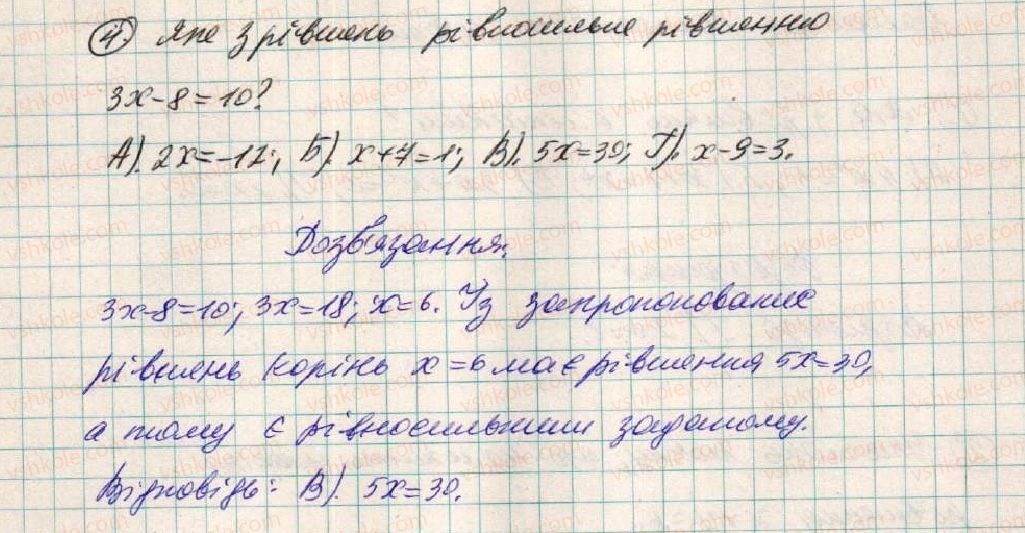 4. Яке з рівнянь рівносильне рівнянню
3x-8=10?
А). 2x=-12; Б). x+7=1; В). 5x=30; Г). x-9=3.
Розв'язання.
3x-8=10; 3x=18; x=6. Із запропонованих
рівнянь корінь x=6 має рівняння 5x=30,
а тому є рівносильним заданому.
Відповідь: В). 5x=30.